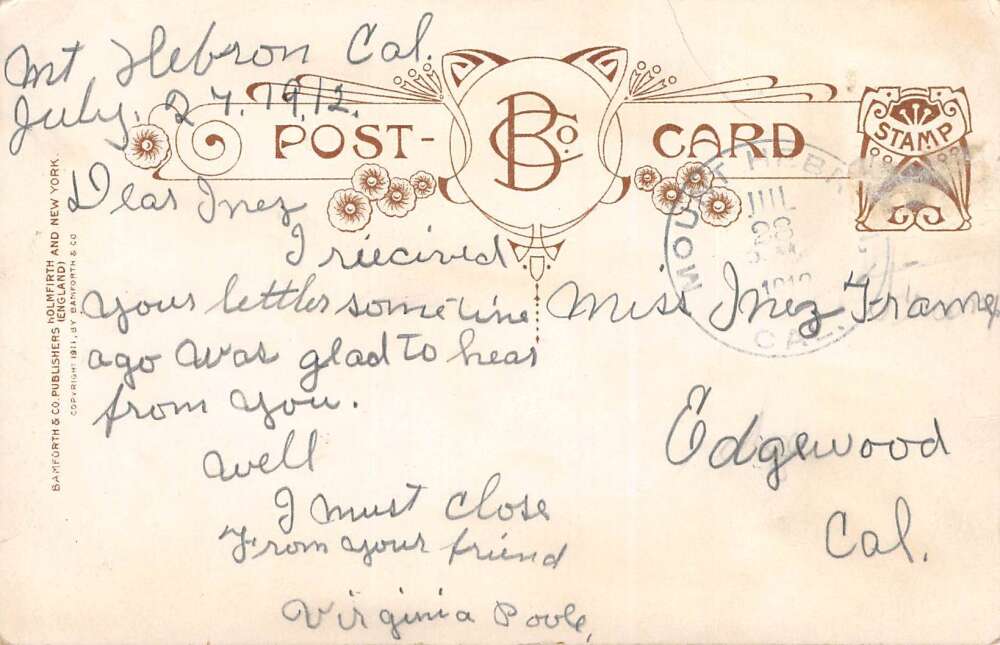 Mt Hebron Cal.
July. 27. 1912.
POST-
B Co.
CARD
STAMP
MOUNT HEBR
JUL
28
CAL.
Dear Inez
I riecived
your lettler sometime
ago was glad to hear
from you.
well
I must close
From your friend
Virginia Poole,
Miss Inez Frame
Edgewood
Cal.
BAMFORTH & CO. PUBLISHERS HOLMFIRTH AND NEW YORK.
(ENGLAND)
COPYRIGHT 1911, BY BAMFORTH & CO